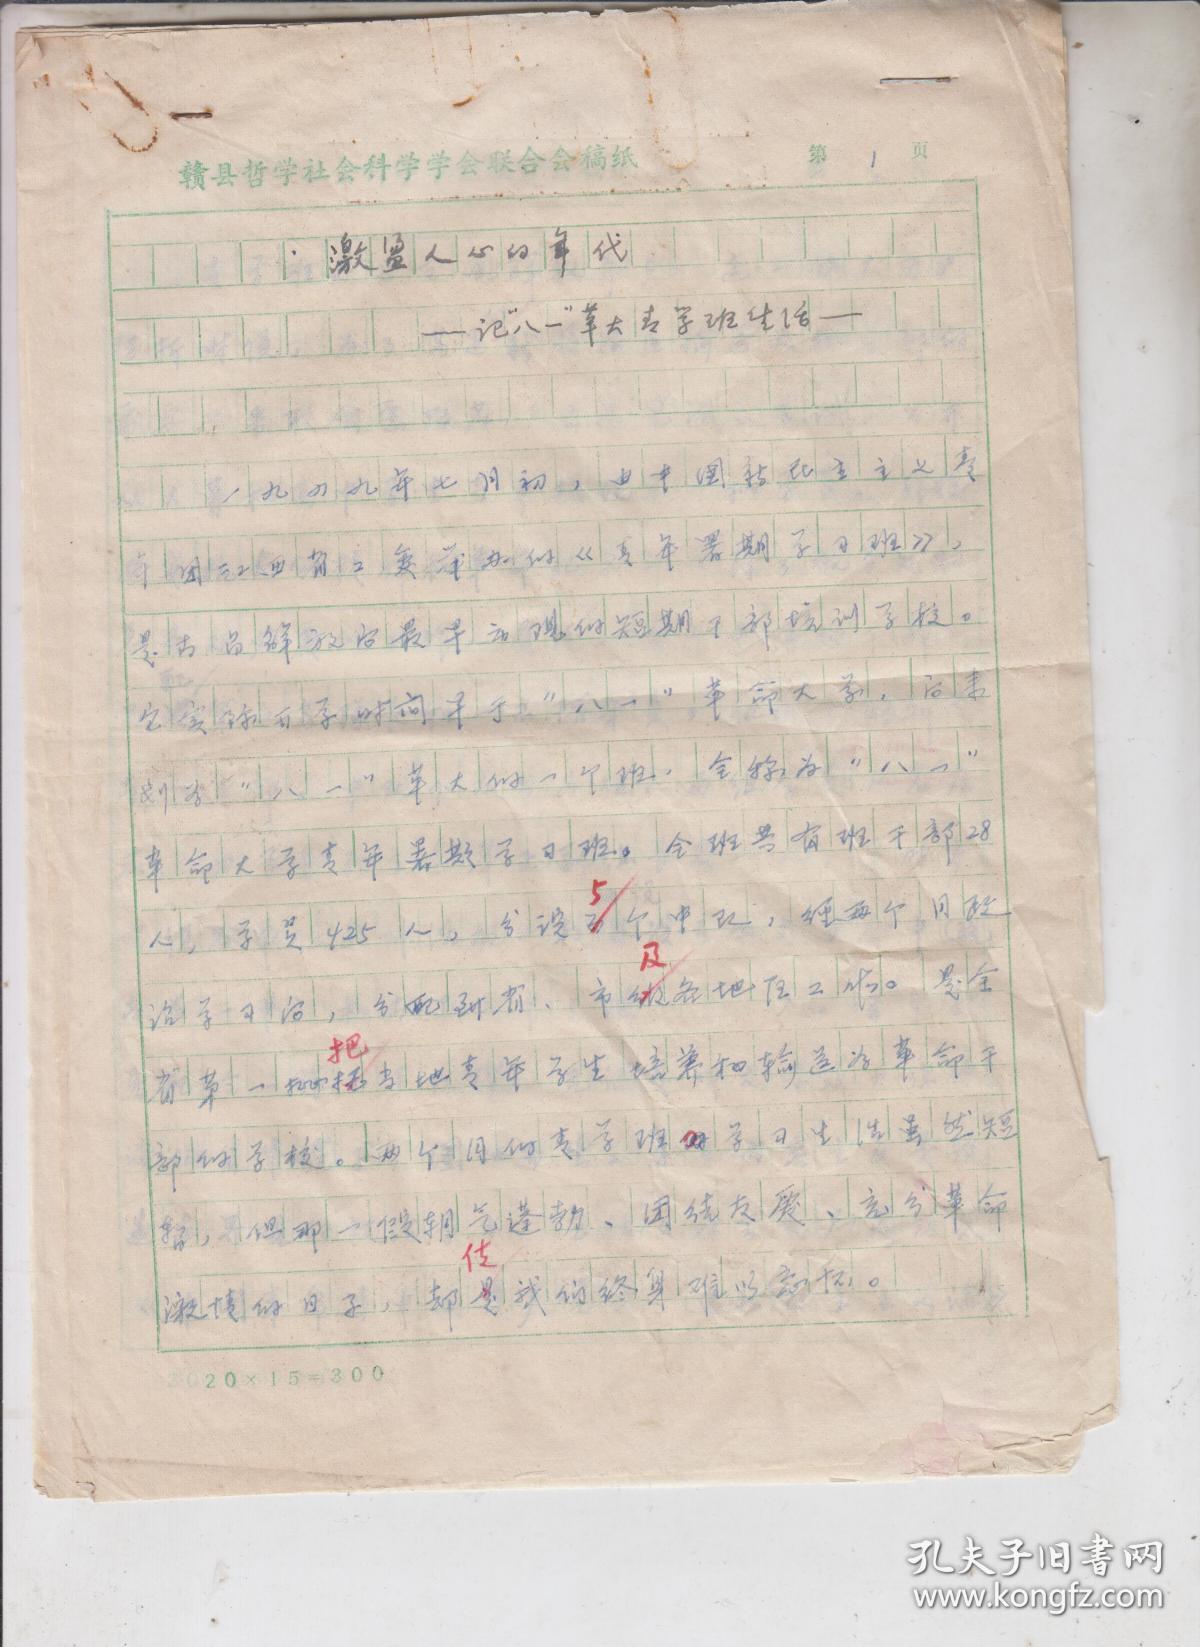 赣县哲学社会科学学会联合会稿纸
第 1 页
激盪人心的年代
——记“八一”革大青学班生活——
一九四九年七月初，由中国新民主主义青
年团江西省工委举办的《青年暑期学习班》，
是南昌解放后最早出现的短期干部培训学校。
它实际开学时间早于“八一”革命大学，后来
划为“八一”革大的一个班，全称为“八一”
革命大学青年暑期学习班。全班共有班干部28
人，学员425人，分设5个中队，经两个月政
治学习后，分配到省、市及各地区工作。是全
省第一批把当地青年学生培养和输送为革命干
部的学校。两个月的青学班的学习生活虽然短
暂，但那一段朝气蓬勃、团结友爱、充分革命
激情的日子，却使我们终身难以忘怀。
20×15=300
孔夫子旧书网
www.kongfz.com